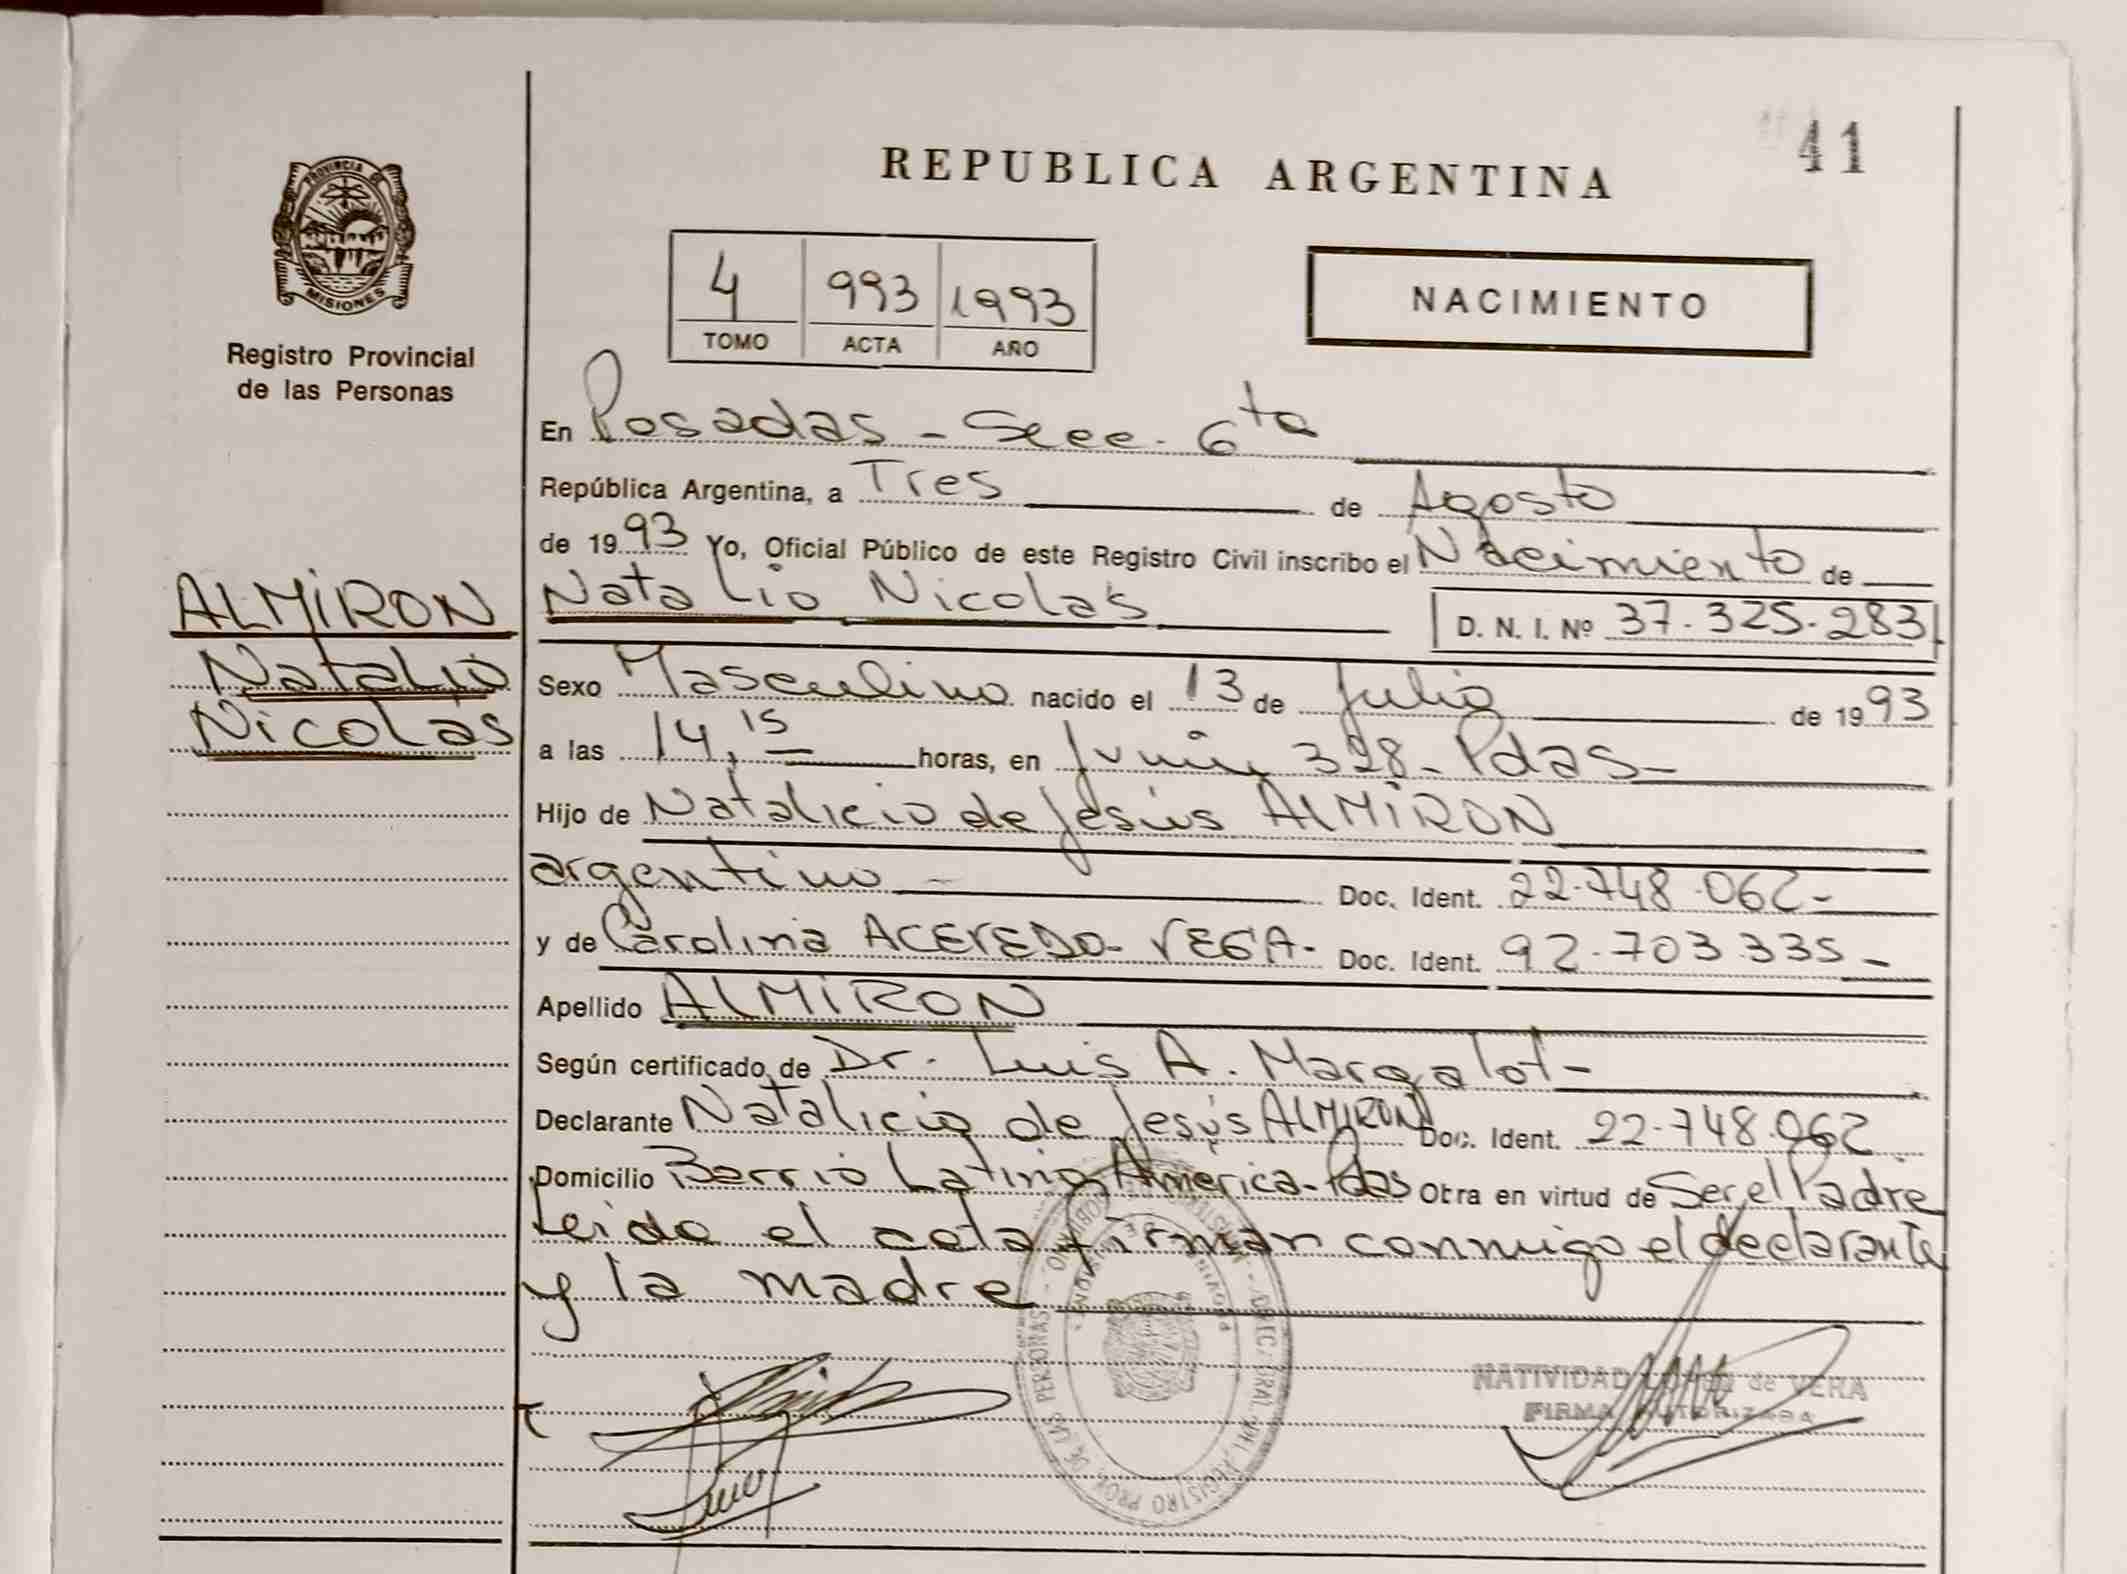 41
REPUBLICA ARGENTINA
PROVINCIA DE
MISIONES
Registro Provincial
de las Personas
4 993 1993
TOMO ACTA AÑO
NACIMIENTO
En Posadas - Secc. 6ta
República Argentina, a Tres de Agosto
de 1993 Yo, Oficial Público de este Registro Civil inscribo el Nacimiento de
ALMIRON
Natalio
Nicolás
Natalio Nicolás D. N. I. Nº 37.325.283
Sexo Masculino nacido el 13 de Julio de 1993
a las 14,15 horas, en Junín 328 - Pdas -
Hijo de Natalicio de Jesús ALMIRON
argentino - Doc. Ident. 22.748.062 -
y de Carolina ACEVEDO - VEGA - Doc. Ident. 92.703.335 -
Apellido ALMIRON
Según certificado de Dr. Luis A. Margalot -
Declarante Natalicio de Jesús ALMIRON Doc. Ident. 22.748.062
Domicilio Barrio Latino América - Pdas Otra en virtud de Ser el Padre
Leida el acta firman conmigo el declarante
y la madre
NATIVIDAD de VERA
FIRMA AUTORIZADA
REGISTRO PROV. DE LAS PERSONAS